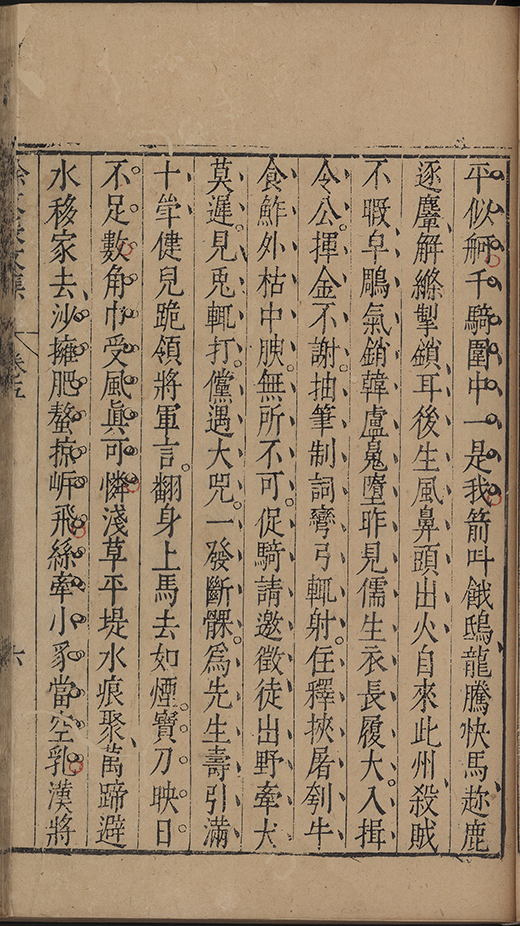 平似䑧千騎圍中一是我箭叫餓鴟龍騰快馬趂鹿
逐麞解縧掣鎖耳後生風鼻頭出火自來此州殺賊
不暇皁雕氣銷韓盧嵬墮昨見儒生衣長履大入揖
令公揮金不謝抽筆制詞彎弓輒射住釋挾屠刳牛
食鮓外枯中腴無所不可促騎請邀徵徒出野牽犬
莫遲見兎輒打儻遇大兕一發斷髁爲先生壽引滿
十斚健兒跪領將軍言翻身上馬去如煙寶刀映日
不足數角巾受風眞可憐淺草平堤水痕聚萬蹄避
水移家去沙擁肥螯掠岓飛絲牽小豸當空乳漢將
徐文長文集
卷五
六